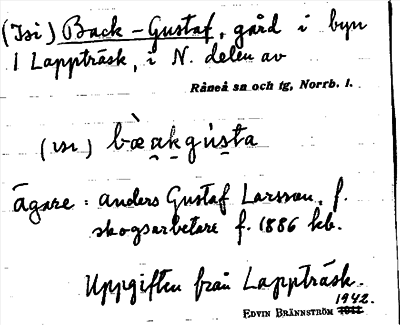 (Isi) Back-Gustaf, gård i byn
1 Lappträsk, i N. delen av
Råneå sn och tg, Norrb. l.
(ısı) bèa̠k̠gu̇s̠ta
Ägare: Anders Gustaf Larsson, f.
skogsarbetare f. 1886 kb.
Uppgiften från Lappträsk.
1942.
EDVIN BRÄNNSTRÖM